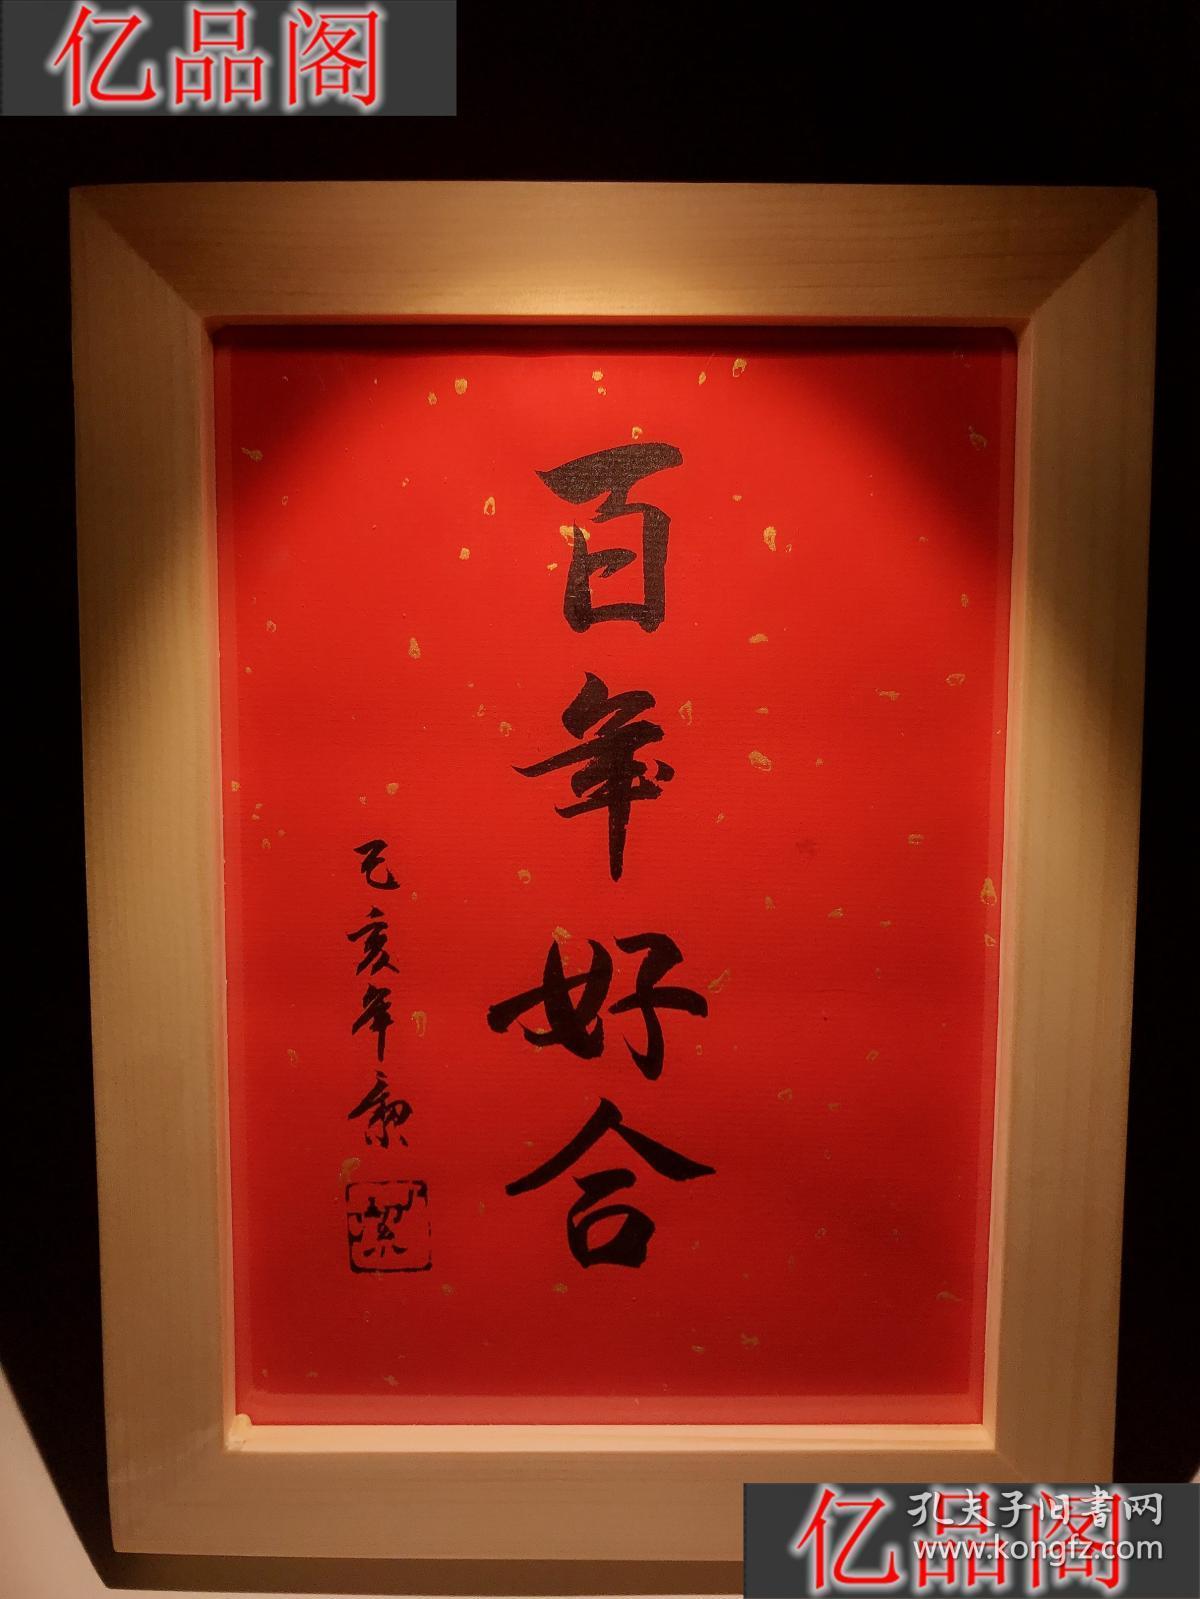 亿品阁
百年好合
己亥年
亿品阁
孔夫子旧书网
www.kongfz.com